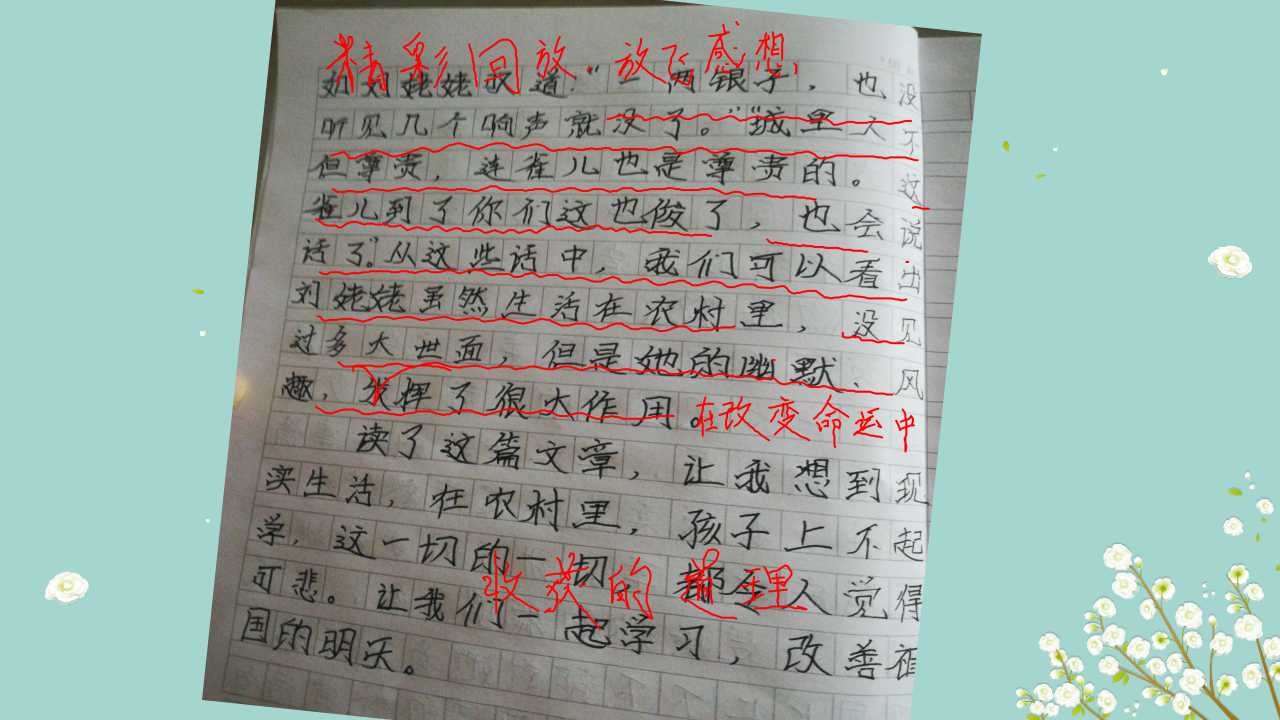 精彩回放，放下感想，
如刘姥姥叹道：“一两银子，也没
听见几个响声就没了。”“城里人不
但尊贵，连雀儿也是尊贵的。这
雀儿到了你们这也俊了，也会说
话了”。从这些话中，我们可以看出
刘姥姥虽然生活在农村里，没见
过多大世面，但是她的幽默、风
趣，发挥了很大作用。
在改变命运中
读了这篇文章，让我想到现
实生活，在农村里，孩子上不起
学，这一切的一切，都令人觉得
收获的道理
可悲。让我们一起学习，改善祖
国的明天。